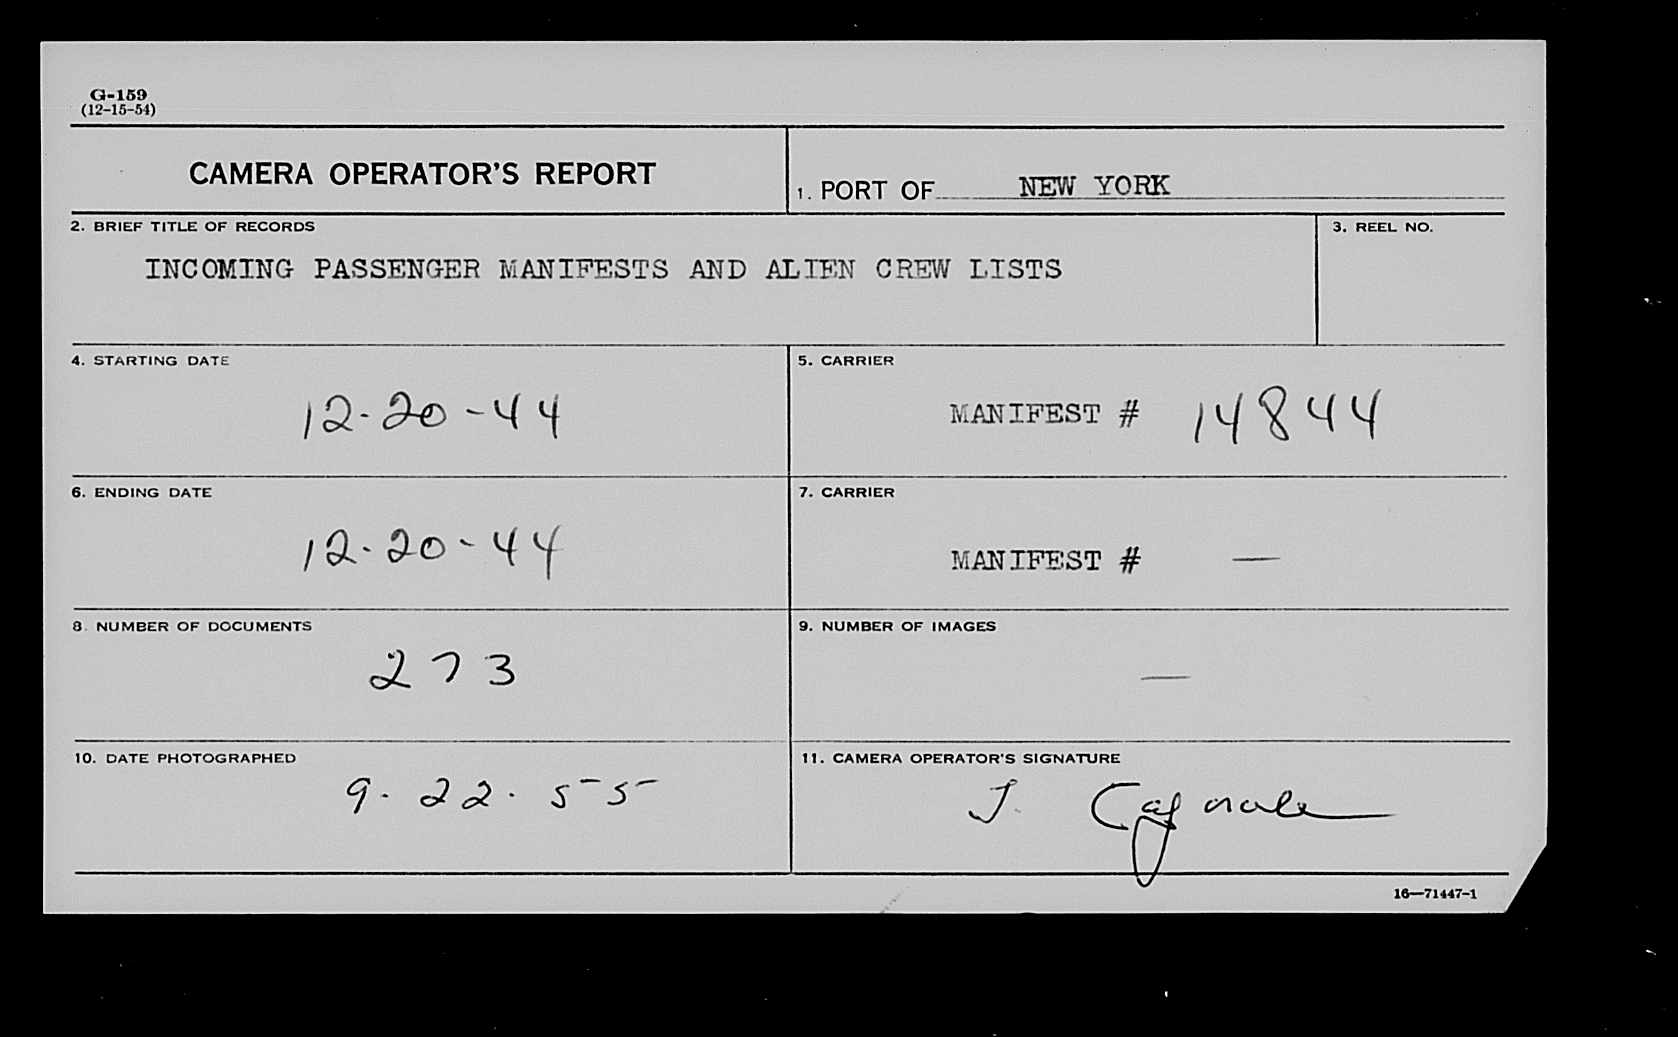 G-159
(12-15-54)
CAMERA OPERATOR'S REPORT
1. PORT OF NEW YORK
2. BRIEF TITLE OF RECORDS
INCOMING PASSENGER MANIFESTS AND ALIEN CREW LISTS
3. REEL NO.
4. STARTING DATE
12-20-44
5. CARRIER
MANIFEST # 14844
6. ENDING DATE
12-20-44
7. CARRIER
MANIFEST # —
8. NUMBER OF DOCUMENTS
273
9. NUMBER OF IMAGES
—
10. DATE PHOTOGRAPHED
9-22-55
11. CAMERA OPERATOR'S SIGNATURE
J.
16—71447-1